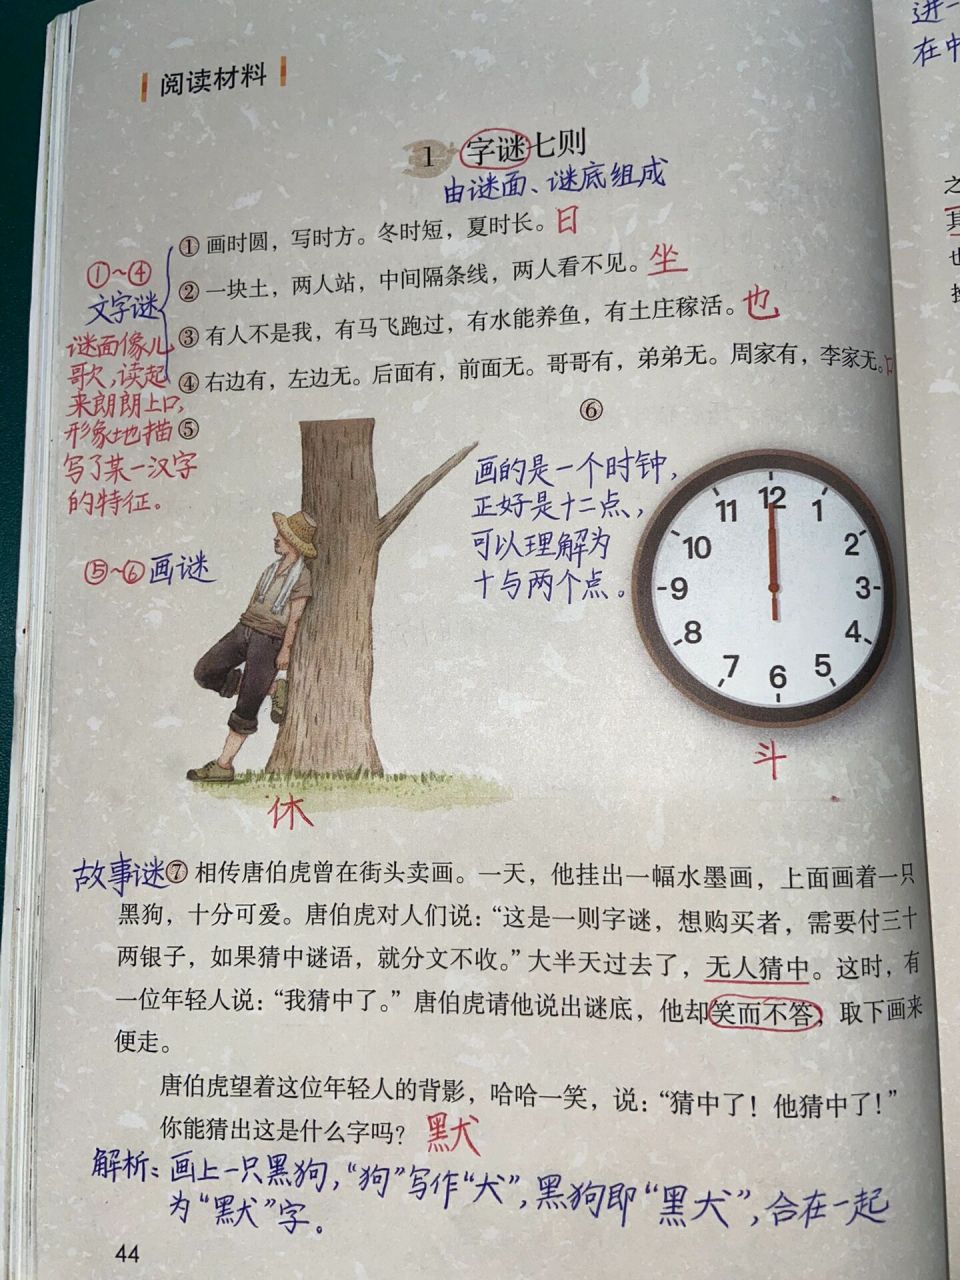 进一
在中
阅读材料
1 字谜七则
由谜面、谜底组成
① 画时圆，写时方。冬时短，夏时长。日
② 一块土，两人站，中间隔条线，两人看不见。坐
③ 有人不是我，有马飞跑过，有水能养鱼，有土庄稼活。也
④ 右边有，左边无。后面有，前面无。哥哥有，弟弟无。周家有，李家无。口
①~④
文字谜
谜面像儿
歌，读起
来朗朗上口，
形象地描
写了某一汉字
的特征。
⑤
⑤~⑥画谜
休
⑥
画的是一个时钟，
正好是十二点，
可以理解为
十与两个点。
12
1
2
3
4
5
6
7
8
9
10
11
斗
故事谜⑦ 相传唐伯虎曾在街头卖画。一天，他挂出一幅水墨画，上面画着一只
黑狗，十分可爱。唐伯虎对人们说：“这是一则字谜，想购买者，需要付三十
两银子，如果猜中谜语，就分文不收。”大半天过去了，无人猜中。这时，有
一位年轻人说：“我猜中了。”唐伯虎请他说出谜底，他却笑而不答，取下画来
便走。
唐伯虎望着这位年轻人的背影，哈哈一笑，说：“猜中了！他猜中了！”
你能猜出这是什么字吗？ 默
解析：画上一只黑狗，“狗”写作“犬”，黑狗即“黑犬”，合在一起
为“默”字。
44